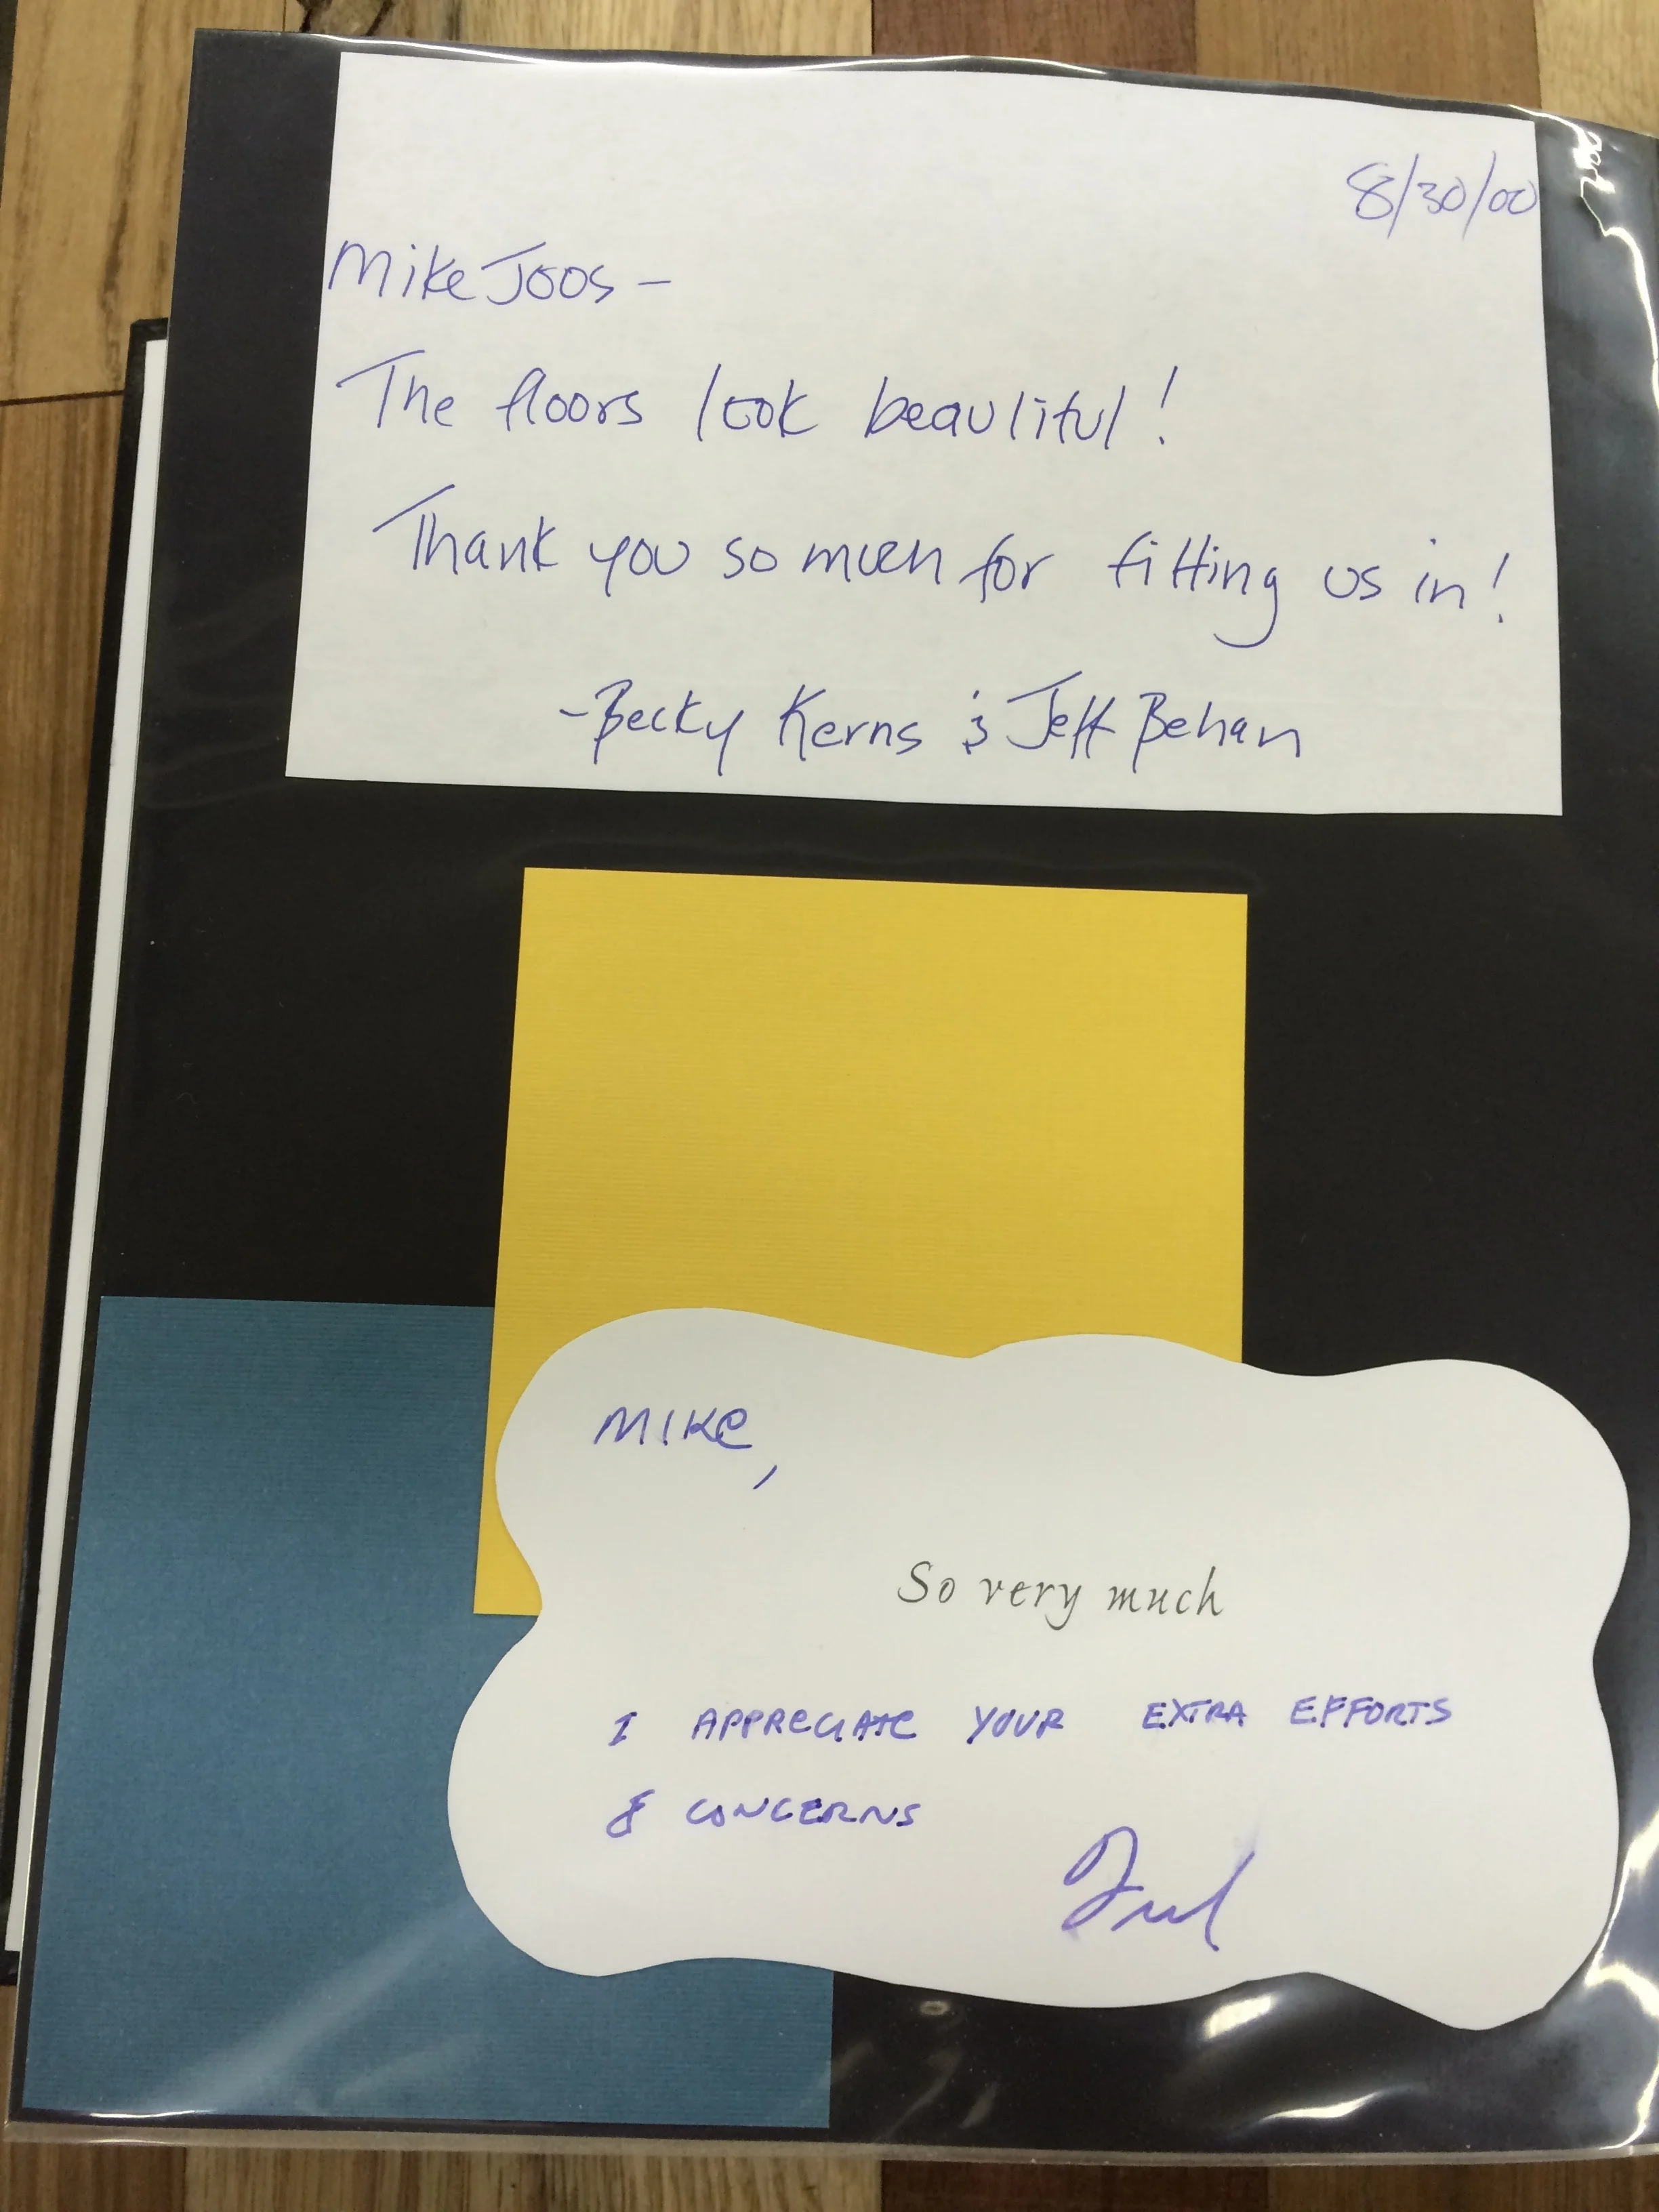 8/30/00
Mike Joos –
The floors look beautiful!
Thank you so much for fitting us in!
- Becky Kerns & Jeff Behan
MIKE,
So very much
I APPRECIATE YOUR EXTRA EFFORTS
& CONCERNS